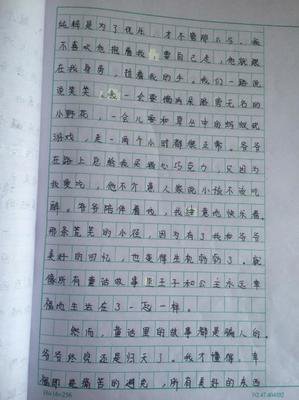 纯粹是为了优乐,才不管那么多。我
不喜欢爸抱着我,要自己走,他就跟
在我身旁,拉着我的手。我们一路说
说笑笑,我一会要摘沿路旁无名的
小野花,一会儿要和草丛中的蚂蚁玩
游戏,走一两个小时都很正常。爷爷
在路上总给我买糖心巧克力,只因为
我爱吃,他不介意人家说小孩不该吃
糖。爷爷陪伴着我,我惬意地快乐着。
那条荒芜的小径,因为有了我和爷爷
美好的回忆,也变得生机勃勃了。就
像所有童话故事里王子和公主永远幸
福地生活在了一起一样。
然而,童话里的故事都是骗人的。
爷爷终究还是归天了。我才懂得,幸
福即是痛苦的避免,所有美好的东西
16×16=256